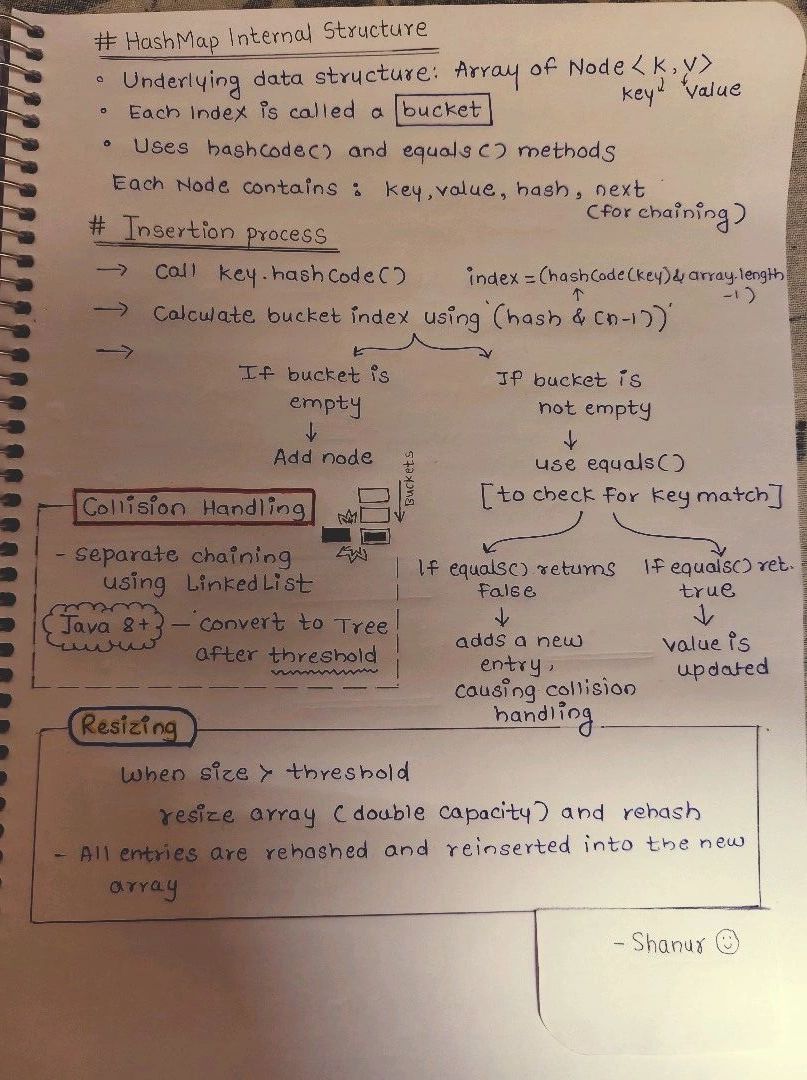 # HashMap Internal Structure
◦ Underlying data structure: Array of Node <k,v>
key value
◦ Each Index is called a bucket
• Uses hashcode() and equals() methods
Each Node contains : key, value, hash, next
(for chaining)
# Insertion process
→ Call key.hashCode()
index = (hashCode(key) & array.length
-1)
→ Calculate bucket index using (hash & (n-1))
→
If bucket is
empty
↓
Add node
If bucket is
not empty
↓
use equals()
[to check for key match]
If equals() returns
false
↓
adds a new
entry,
causing collision
handling
If equals() ret.
true
↓
value is
updated
Buckets
Collision Handling
- separate chaining
using LinkedList
Java 8+ - convert to Tree
after threshold
Resizing
When size > threshold
resize array (double capacity) and rehash
- All entries are rehashed and reinserted into the new
array
- Shanur ☺